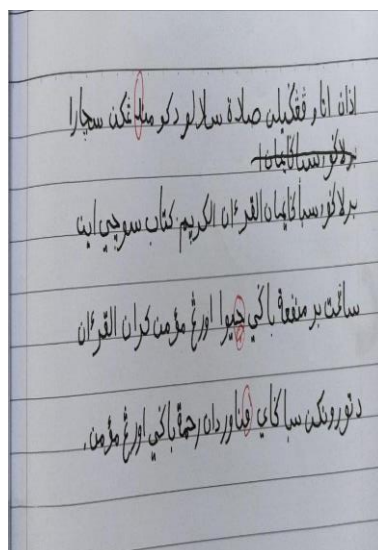 اذان اتاو ڤڠݢيلن صلاة سلالو دكومندڠكن سچارا
برلاكو سباݢايمان القرءان الكريم. كتاب سوچي اين
ساڠت برمنفعة باݢي جيوا اورڠ مؤمن كران القرءان
دتورونكن سباݢاي ڤناور دان رحمة باݢي اورڠ مؤمن.